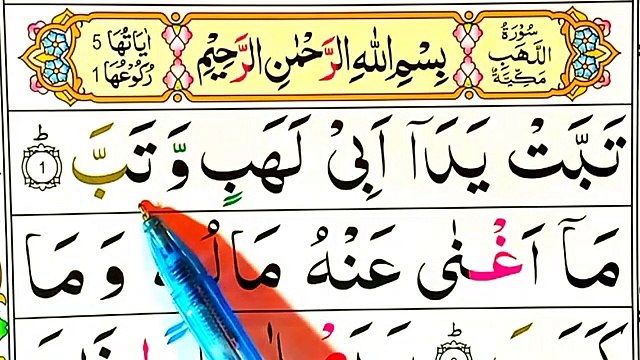 سُوْرَةُ اللَّهَبِ مَكِّيَّةٌ
بِسْمِ اللهِ الرَّحْمٰنِ الرَّحِيْمِ
اٰيَاتُهَا 5 رُكُوْعُهَا 1
تَبَّتْ يَدَاۤ اَبِيْ لَهَبٍ وَّ تَبَّ ؕ 1
مَاۤ اَغْنٰى عَنْهُ مَالُهٗ وَ مَا